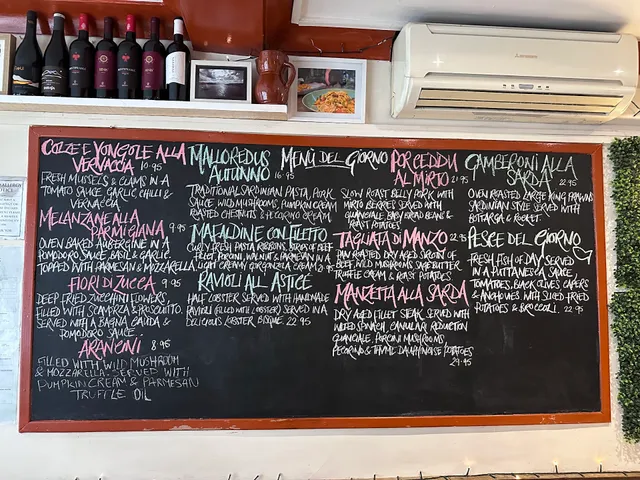 COZZE E VONGOLE ALLA
VERNACCIA 10.95
FRESH MUSSELS & CLAMS IN A
TOMATO SAUCE GARLIC CHILLI &
VERNACCIA
MELANZANE ALLA
PARMIGIANA 9.95
OVEN BAKED AUBERGINE IN A
POMODORO SAUCE, BASIL & GARLIC
TOPPED WITH PARMESAN & MOZZARELLA
FIORI DI ZUCCA 9.95
DEEP FRIED ZUCCHINI FLOWERS,
FILLED WITH SCAMORZA & PROSCIUTTO.
SERVED WITH A BAGNA CAUDA &
POMODORO SAUCE
ARANCINI 8.95
FILLED WITH WILD MUSHROOM
& MOZZARELLA. SERVED WITH
PUMPKIN CREAM & PARMESAN
TRUFFLE OIL
MALLOREDUS
AUTUNNO 16.95
TRADITIONAL SARDINIAN PASTA, PORK
SAUCE WILD MUSHROOMS, PUMPKIN CREAM
ROASTED CHESTNUTS & PECORINO CREAM
MAFALDINE CON FILETTO
CURLY FRESH PASTA RIBBONS, STRIPS OF BEEF
FILLET, PORCINI, WALNUT & PARMESAN IN A
LIGHT CREAMY GORGONZOLA CREAM
RAVIOLI ALL' ASTICE
HALF LOBSTER SERVED WITH HANDMADE
RAVIOLI (FILLED WITH LOBSTER) SERVED IN A
DELICIOUS LOBSTER BISQUE 22.95
MENÙ DEL GIORNO
PORCEDDU
AL MIRTO 21.95
SLOW ROAST BELLY PORK WITH
MIRTO BERRIES SERVED WITH
GUANCIALE, BABY BROAD BEANS &
ROAST POTATOES
TAGLIATA DI MANZO 22.95
PAN ROASTED DRY AGED SIRLOIN OF
BEEF WILD MUSHROOMS, SAGE BUTTER
TRUFFLE CREAM & ROAST POTATOES
MANZETTA ALLA SARDA
DRY AGED FILLET STEAK, SERVED WITH
WILTED SPINACH, CANNONAU REDUCTION
GUANCIALE, PORCINI MUSHROOMS,
PECORINO & THYME DAUPHINOISE POTATOES
29.95
GAMBERONI ALLA
SARDA 22.95
OVEN ROASTED LARGE KING PRAWNS
SARDINIAN STYLE SERVED WITH
BOTTARGA & ROCKET
PESCE DEL GIORNO
FRESH FISH OF DAY SERVED
IN A PUTTANESCA SAUCE,
TOMATOES, BLACK OLIVES, CAPERS
& ANCHOVIES WITH SLICED FRIED
POTATOES & BROCCOLI. 22.95